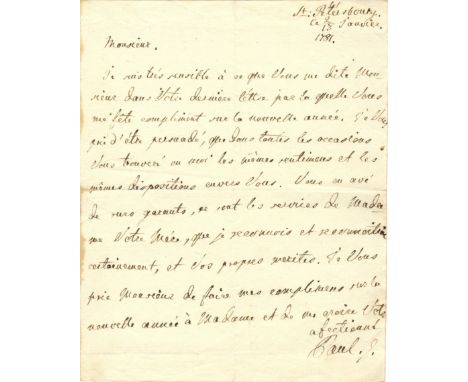 St: Pétersbourg
ce 2/13 Janvier
1781.
Monsieur.
Je suis très sensible à ce que Vous me dite Mon
sieur dans Votre derniere lettre par la quelle Vous
me faite compliment sur la nouvelle année. Je Vous
prie d'être persuadé, que dans toutes les occasions
Vous trouveré en moi les mêmes sentimens et les
mêmes dispositions envers Vous. Vous en avé
de surs garants, ce sont les services de Mada
me Votre Mére, que je reconnois et reconnoitrai
certainement, et Vos propres merites. Je Vous
prie Monsieur de faire mes complimens sur la
nouvelle année à Madame et de me croire Votre
afectionné
Paul.